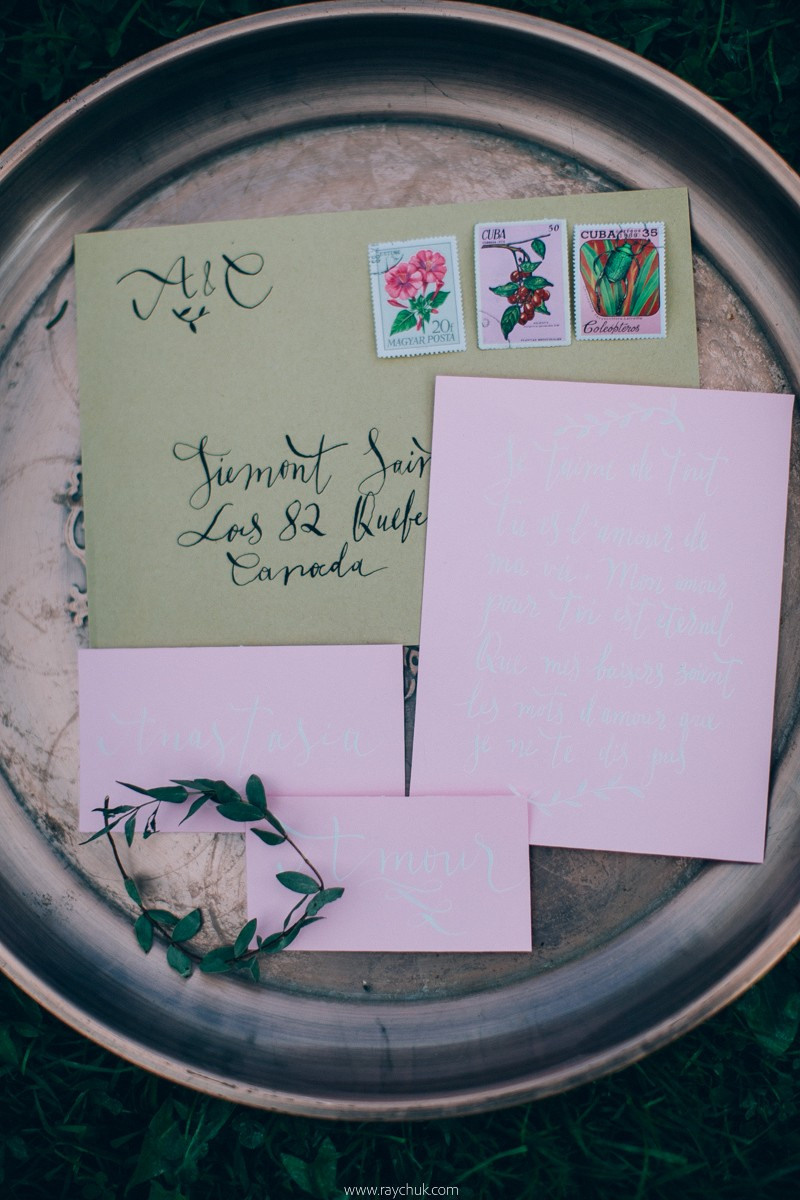 A & C
20f
MAGYAR POSTA
CUBA 50
CUBA 35
Coleopteros
Siemont Sain
Lois 82 Quebe
Canada
Je t'aime de tout
Tu es l'amour de
ma vie Mon amour
pour toi est éternel
Que mes baisers soient
les mots d'amour que
je ne te dis pas
Anastasia
Amour
www.raychuk.com